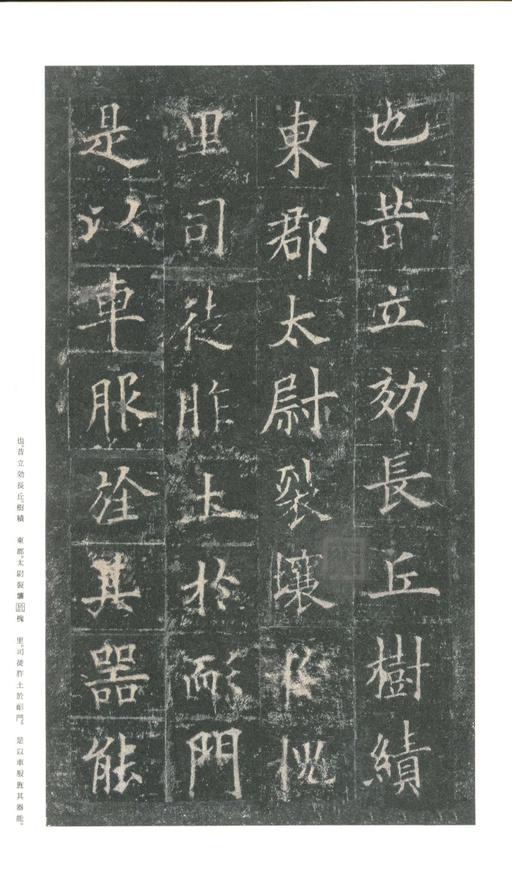 也昔立効長丘樹績
東郡太尉裂壤於槐
里司徒胙土於耏門
是以車服旌其器能
也。昔立効長丘。樹績　東郡。太尉裂壤於槐　里。司徒胙土於耏門。　是以車服旌其器能。